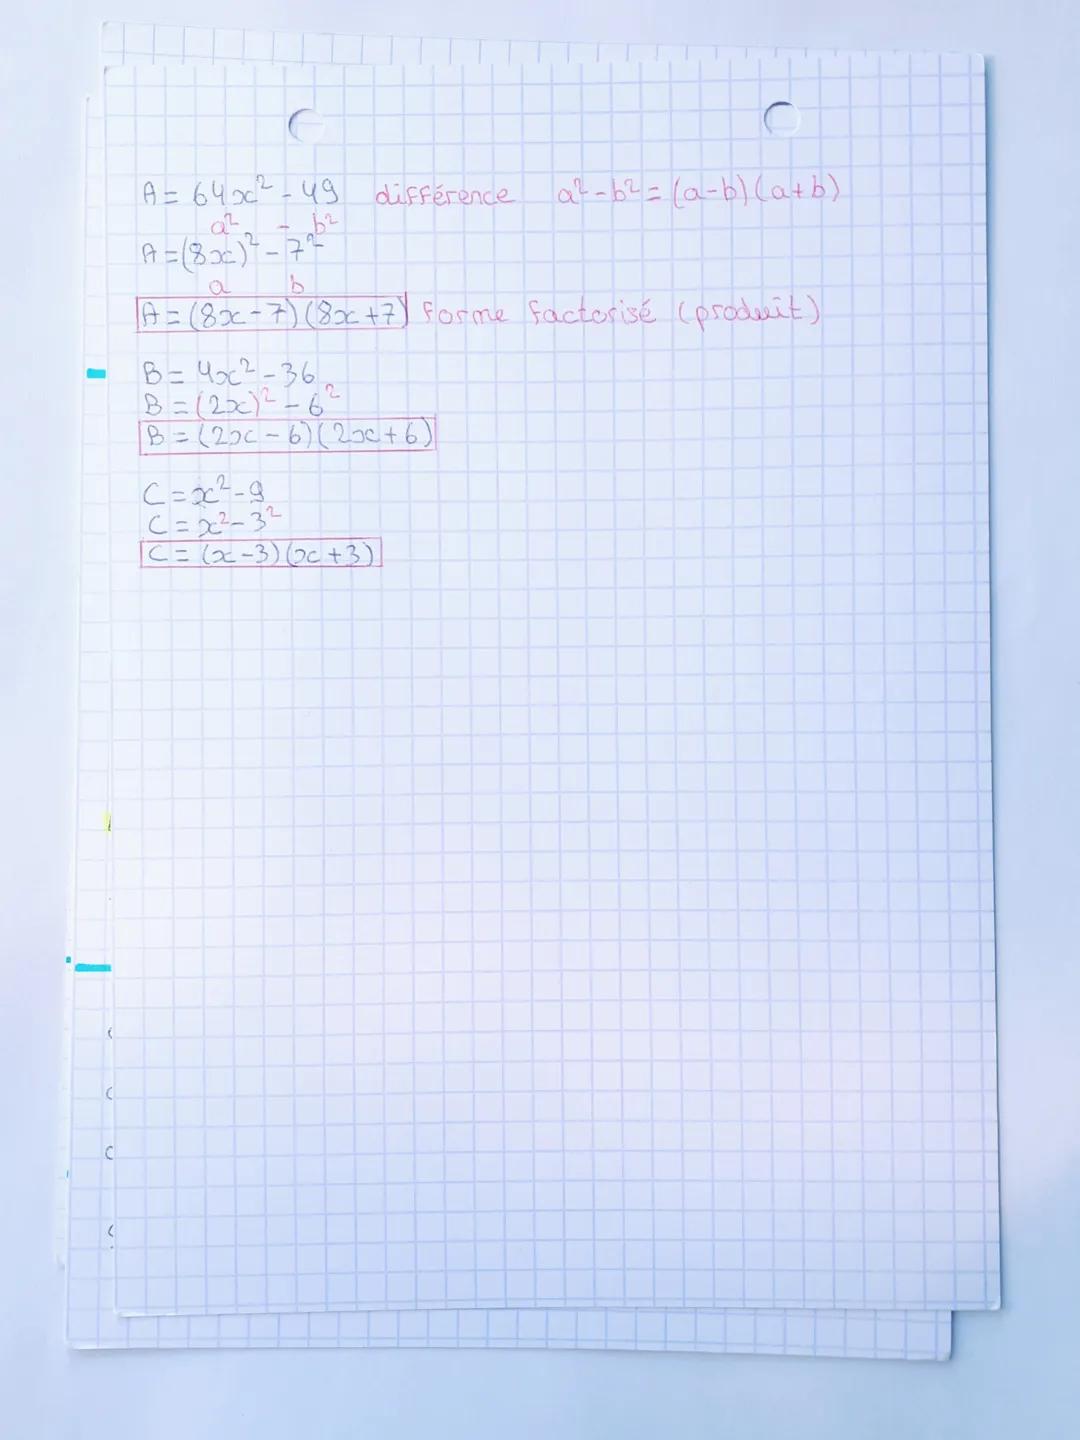 A = 64x² - 49 différence a² - b² = (a-b)(a+b)
a² - b²
A = (8x)² - 7²
a b
A = (8x - 7)(8x + 7) forme factorisé (produit)
B = 4x² - 36
B = (2x)² - 6²
B = (2x - 6)(2x + 6)
C = x² - 9
C = x² - 3²
C = (x - 3)(x + 3)